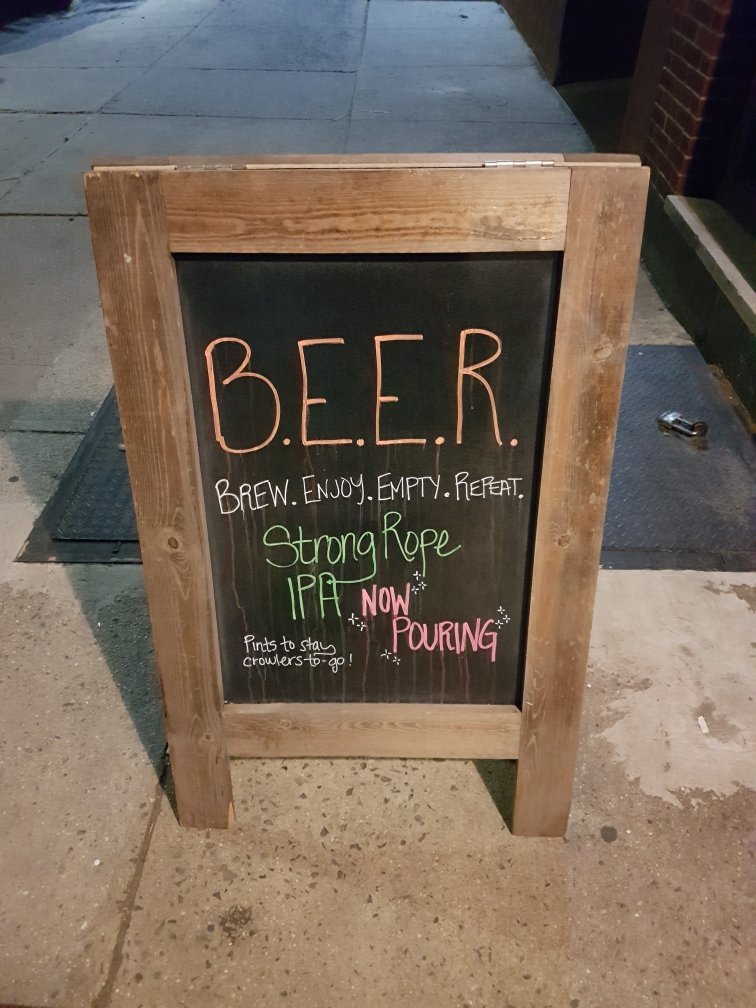 B.E.E.R.
BREW. ENJOY. EMPTY. REPEAT.
Strong Rope
IPA NOW
POURING
Pints to stay
crowlers-to-go!